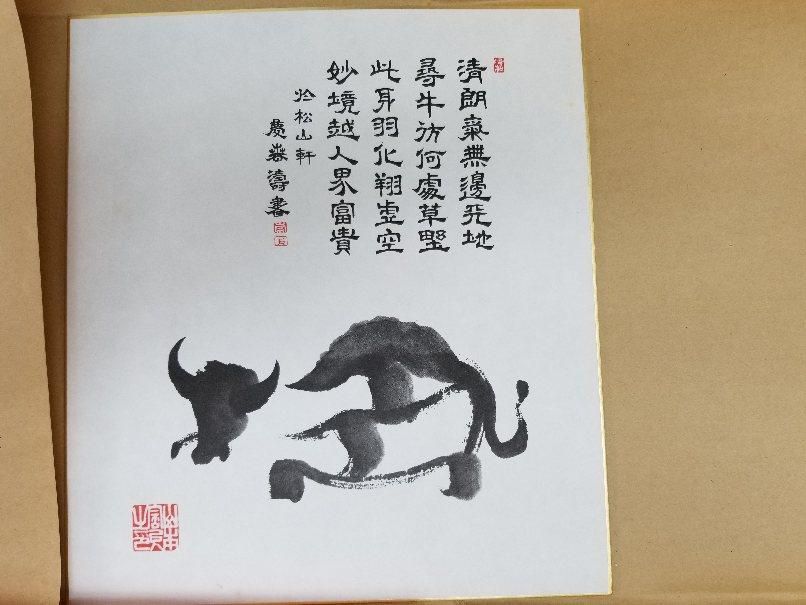 清朗氣無邊天地
尋牛彷何處草野
此身羽化翔虛空
妙境越人界富貴
於松山軒
慶濤書